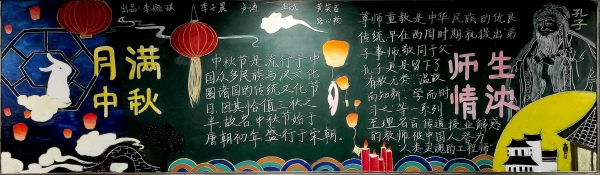 出品:李婉琪
李子晨
月满
中秋
中秋节是流行于中
国众多民族与汉文化
圈诸国的传统文化节
日,因其恰值三秋之
半,故名,中秋节始于
唐朝初年,盛行于宋朝。
尊师重教是中华民族的优良
传统,早在西周时期就提出"弟
子事师,敬同于父"
孔子更是留下了
有教无类,温故
而知新,学而时
习之等一系列
至理名言,传道授业解惑
的教师被中国人誉为
"人类灵魂的工程师"
师生
情浓
孔子